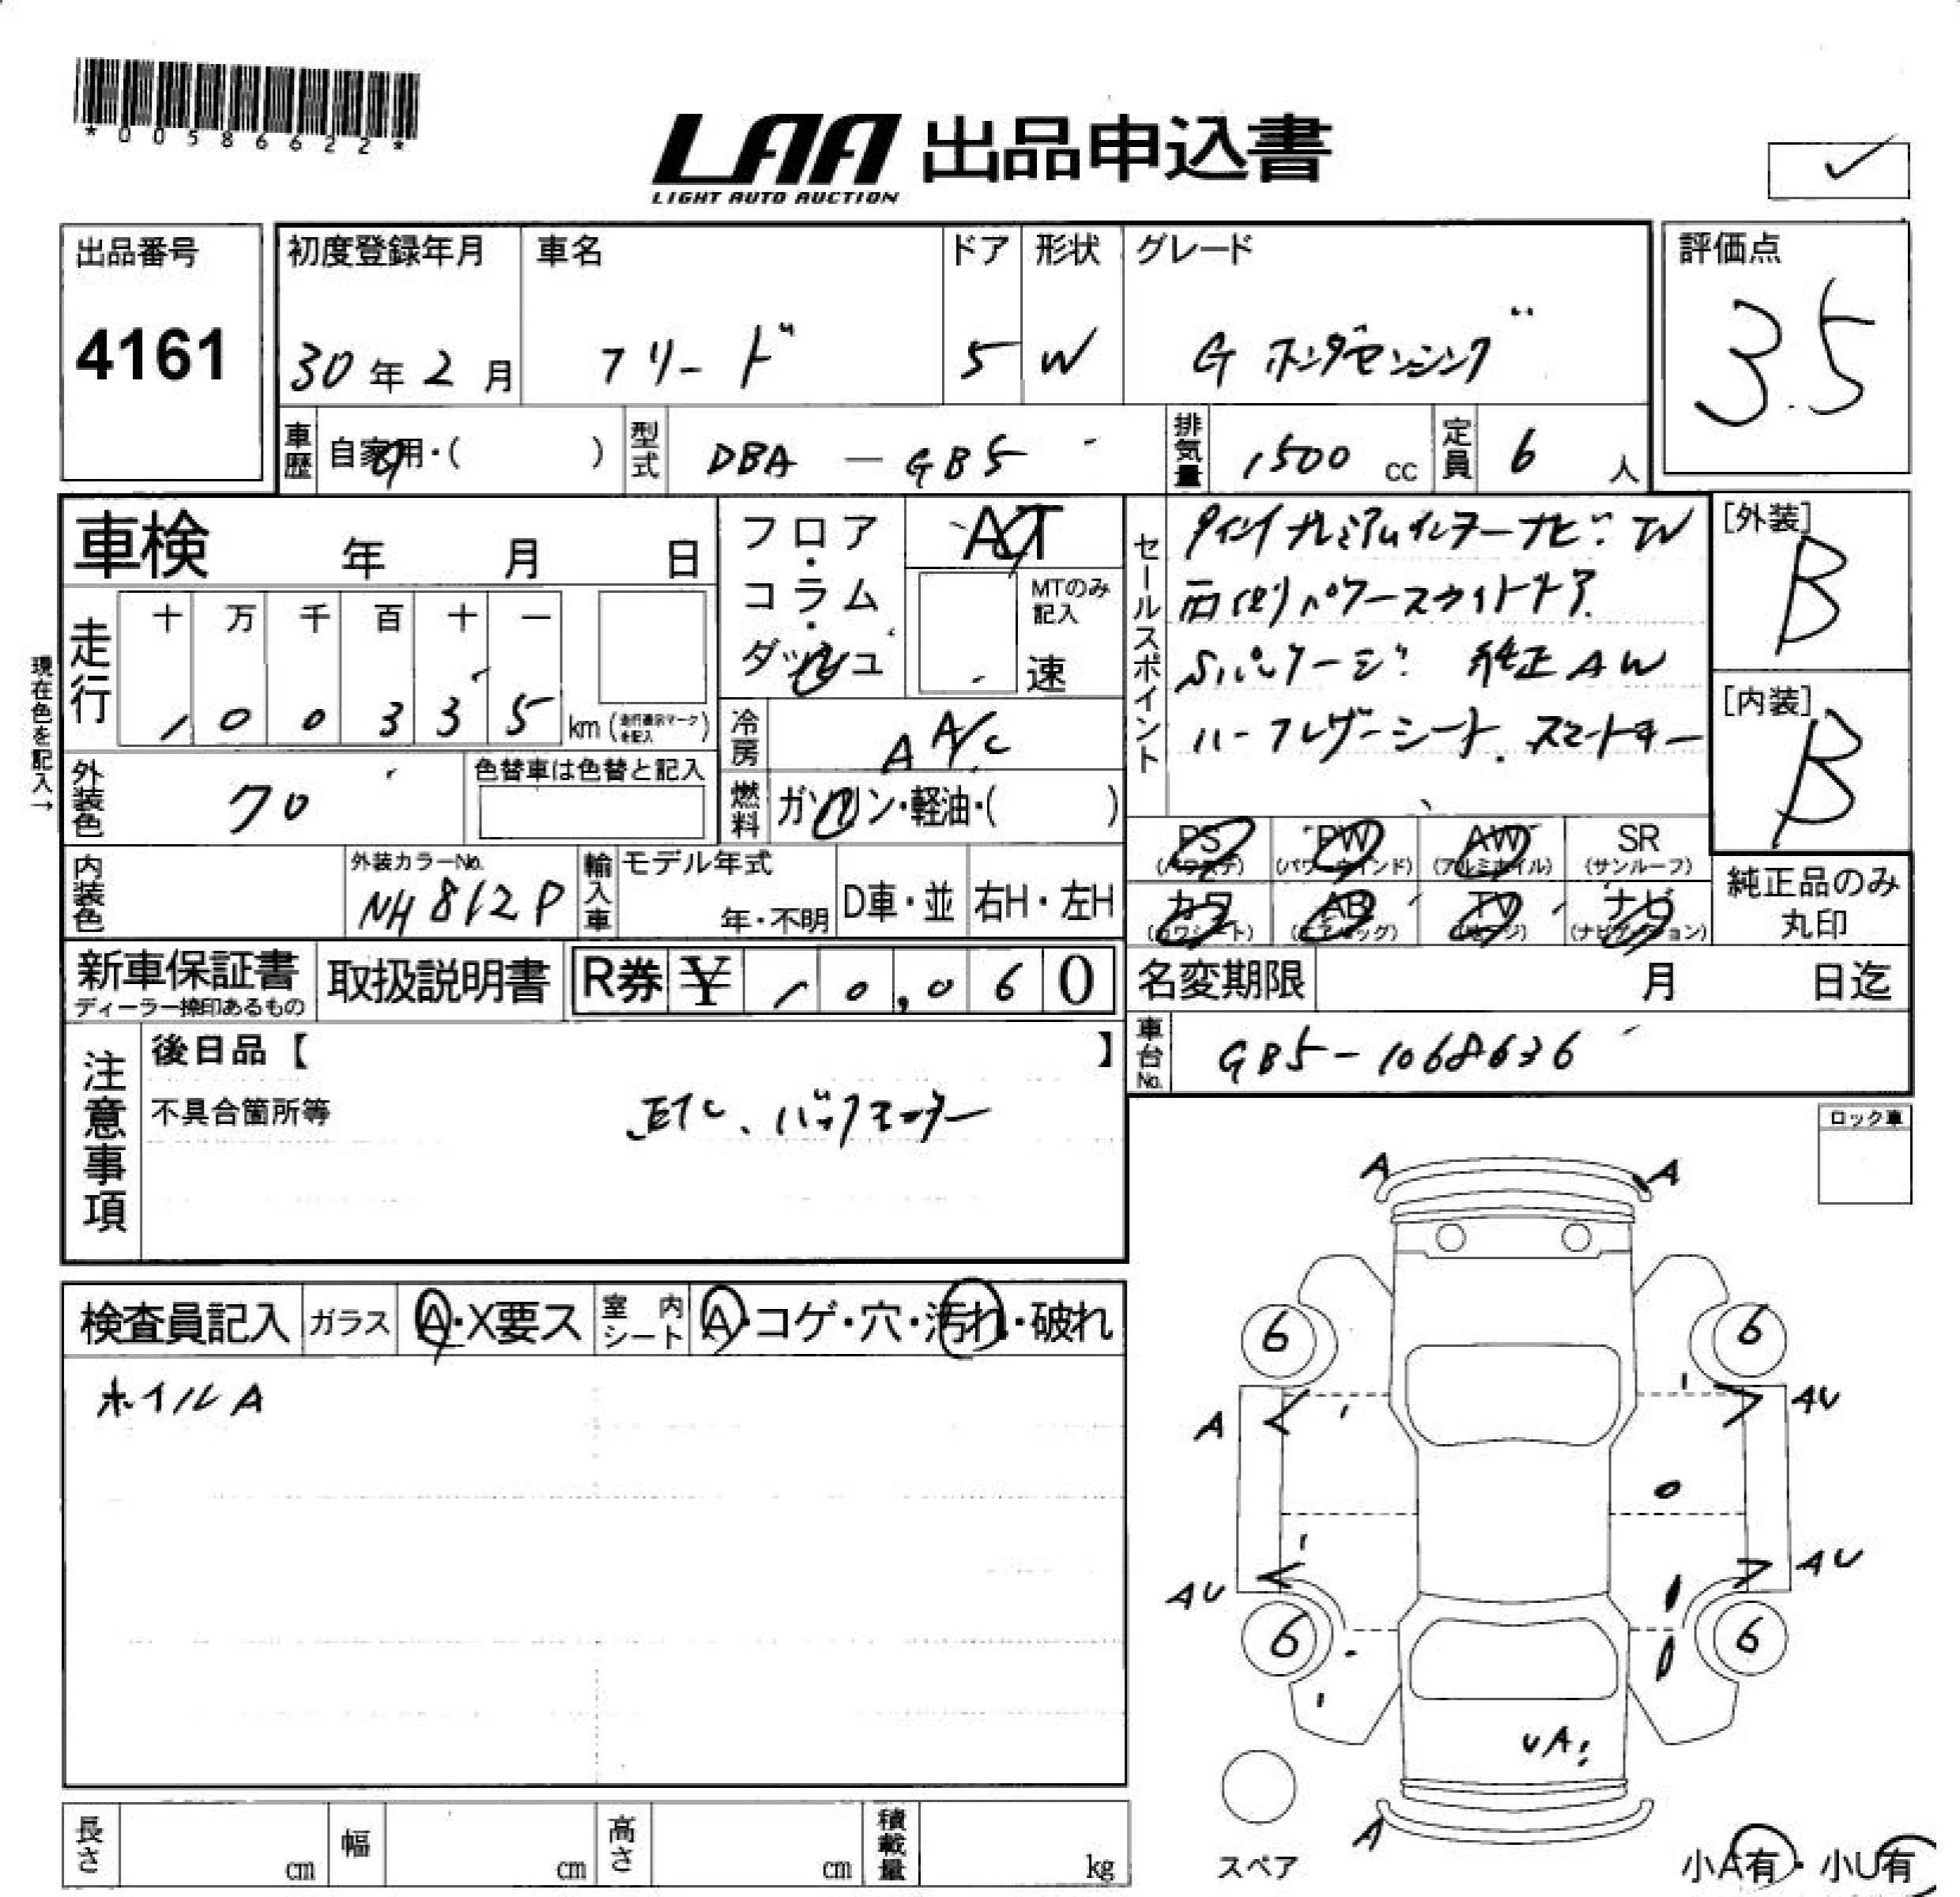 *00586622*
LAA 出品申込書
LIGHT AUTO AUCTION
出品番号
4161
初度登録年月
30年2月
車名
フリード
ドア
5
形状
W
グレード
G ホンダセンシング
評価点
3.5
車歴
自家用・( )
型式
DBA - GB5
排気量
1500 cc
定員
6 人
車検 年 月 日
フロア・コラム・ダッシュ
AT
MTのみ記入
速
セールスポイント
プレミアムインターナビ TV
両側パワースライドドア
Sパッケージ 純正AW
ハーフレザーシート.スマートキー
[外装]
B
[内装]
B
現在色を記入→
走行
十 万 千 百 十 一
1 0 0 3 3 5 km (走行表示マークを記入)
冷房
A A/C
外装色
クロ
色替車は色替と記入
燃料
ガソリン・軽油・( )
内装色
外装カラーNo.
NH812P
輸入車
モデル年式
年・不明
D車・並
右H・左H
PS
(パワステ)
PW
(パワーウインド)
AW
(アルミホイル)
SR
(サンルーフ)
カワ
(カワシート)
AB
(エアバッグ)
TV
ナビ
(ナビゲーション)
純正品のみ丸印
新車保証書
ディーラー捺印あるもの
取扱説明書
R券 ¥ 10,060
名変期限 月 日迄
車台No.
GB5-1068636
注意事項
後日品【 】
不具合箇所等
ETC、バックモニター
ロック車
検査員記入
ガラス
A・X要ス
室内シート
A・コゲ・穴・汚れ・破れ
ホイルA
A A
6 6
A AU
AU AU
6 6
UA
A
スペア
小A有・小U有
長さ cm
幅 cm
高さ cm
積載量 kg